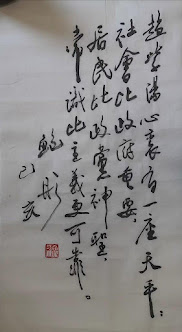 趙紫陽心裏有一座天平：
社會比政府重要，
居民比政黨神聖，
常識比主義更可靠。
鮑彤
己亥